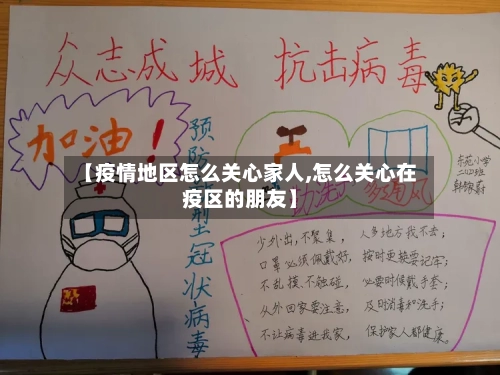 众志成城 抗击病毒
加油！
预防新型冠状病毒
勤洗手
多通风
东苑小学
二(4)班
【疫情地区怎么关心家人,怎么关心在
疫区的朋友】
少外出,不聚集,人多地方我不去;
口罩必须佩戴好,按时更换要记牢;
不乱摸、不触碰,必要时候戴手套;
从外回家要注意,及时消毒和洗手;
不让病毒进我家,保护家人都健康。